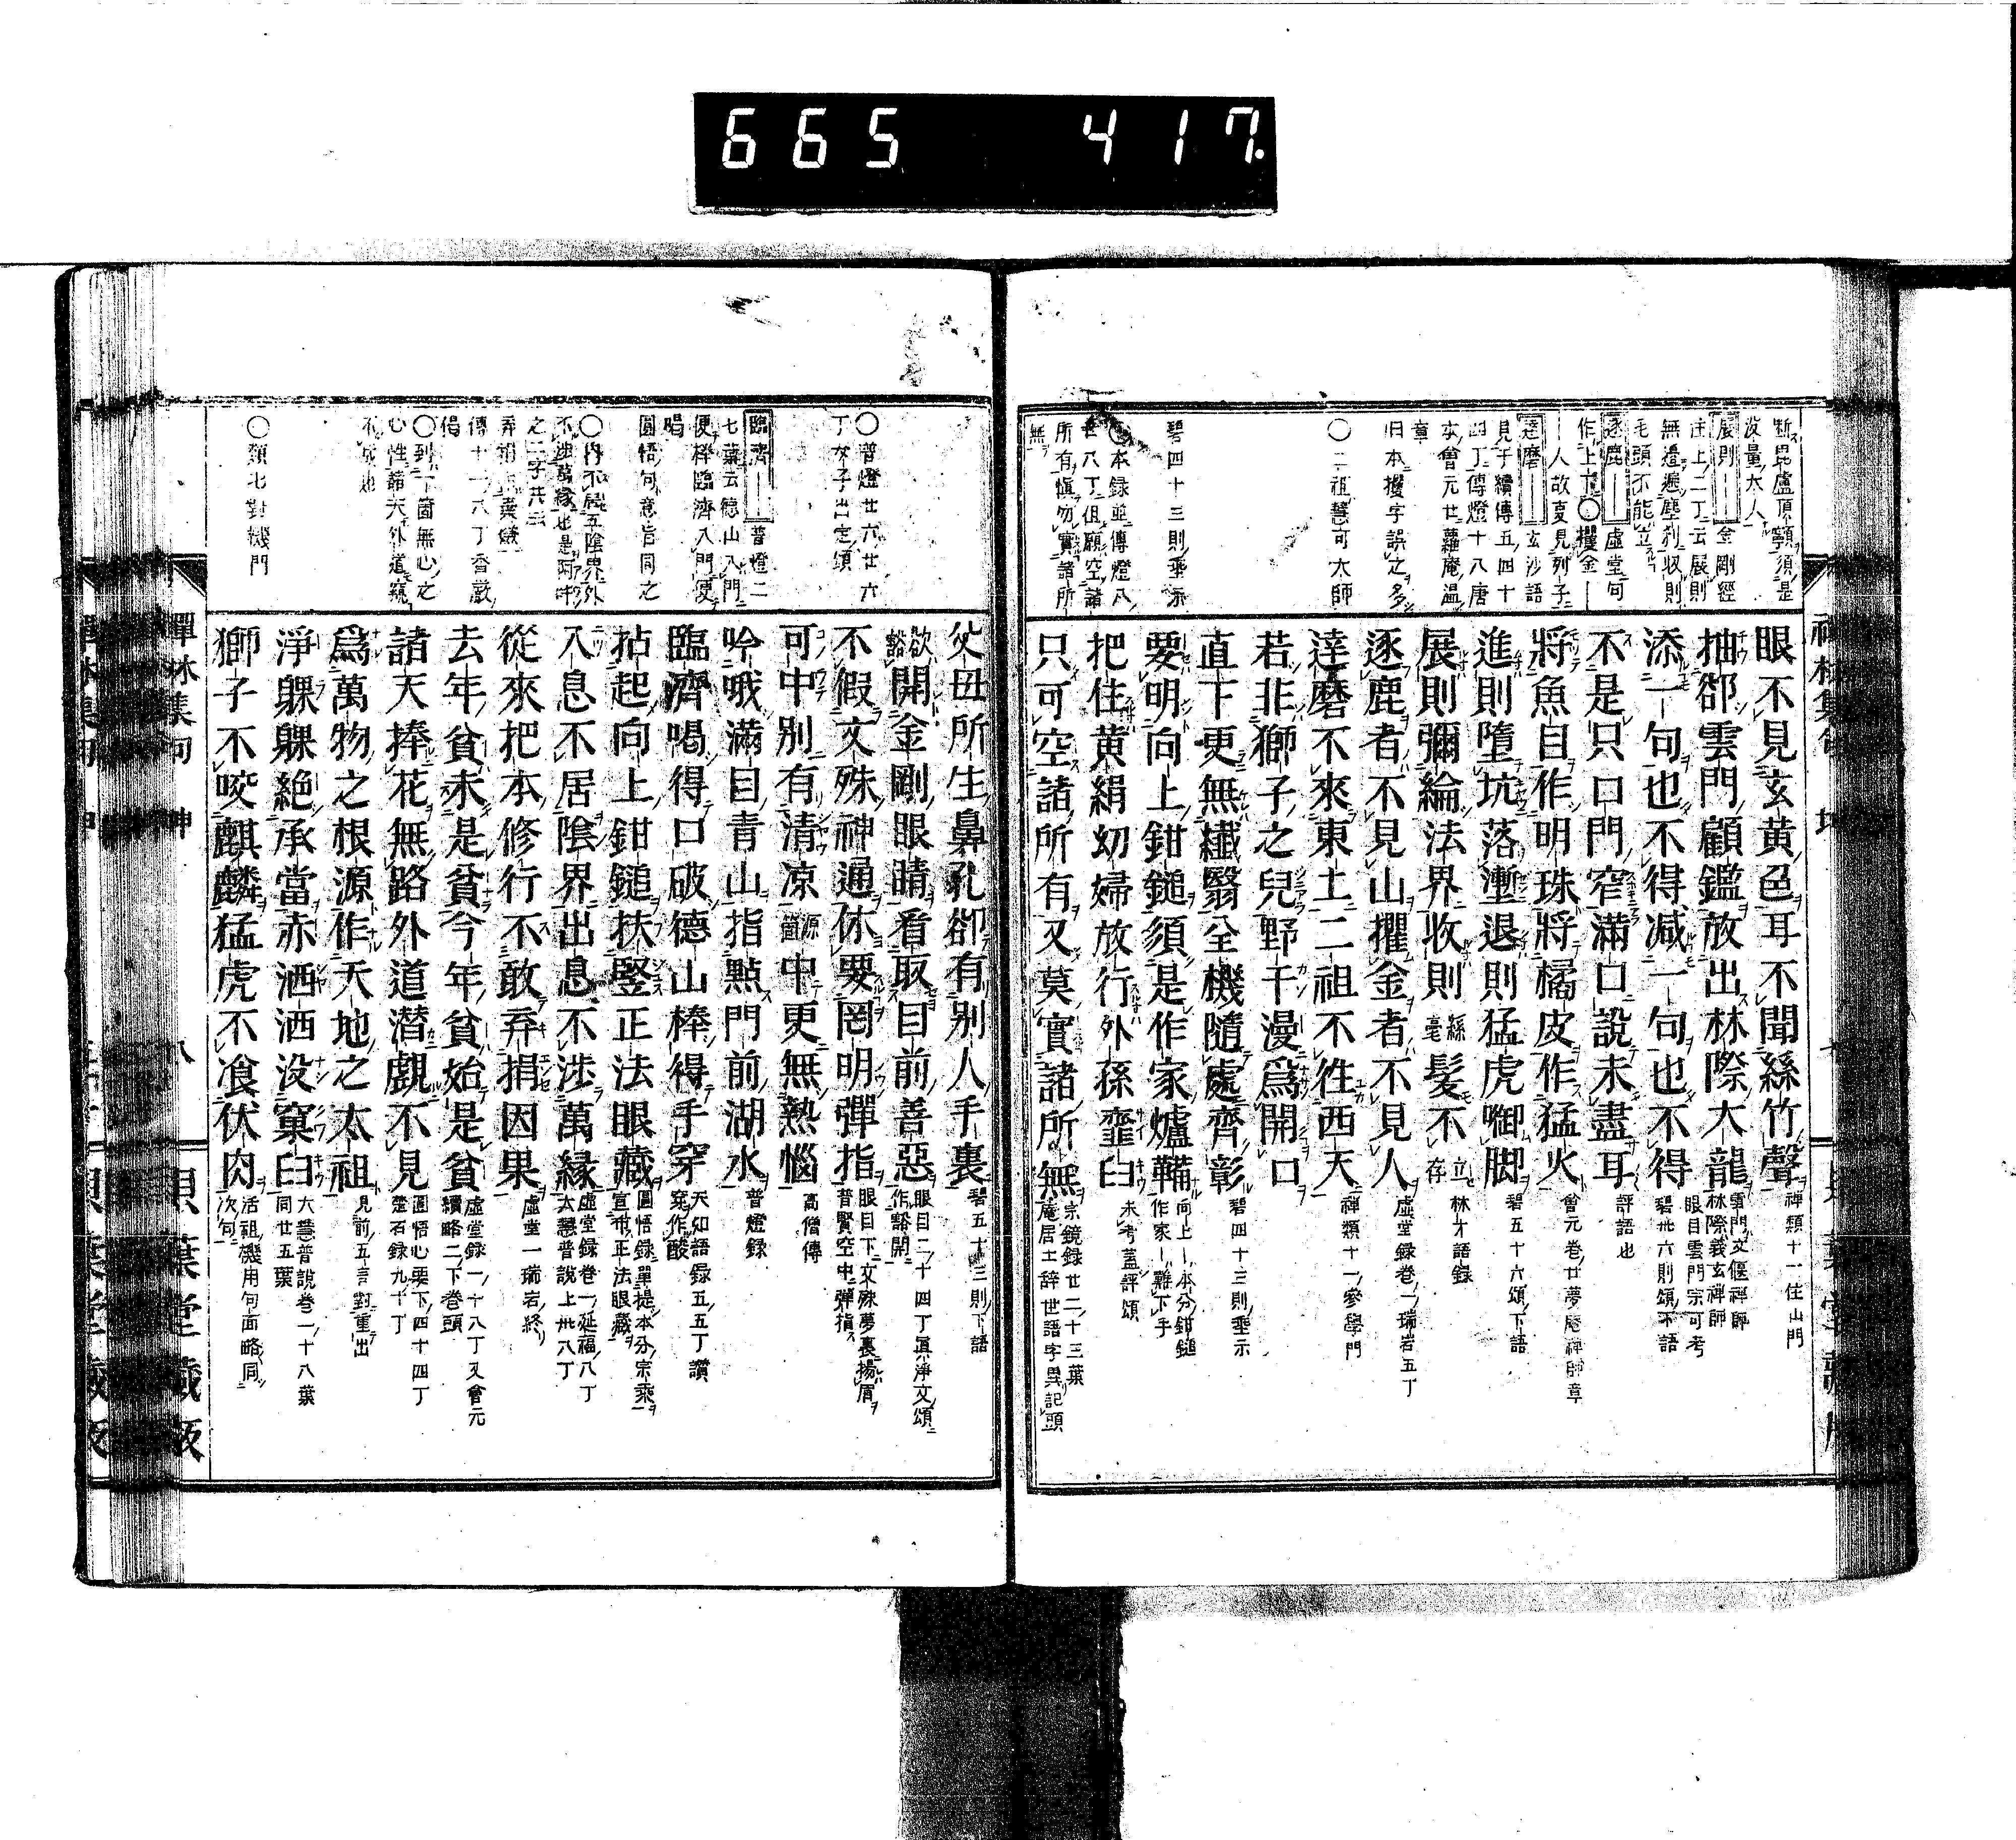 665 417.
斷毘盧頂𩕳須是
沒量大人
展則 金剛經
註上二丁云展則
無邊遍塵刹收則
毛頭不能立
逐鹿 虛堂句
作上下○攫金
人故夏見列子
達磨 玄沙語
見于續傳五四十
四丁傳燈十八唐
本會元廿蘿庵溫
章
旧本攫字誤之多
○二祖慧可大師
碧四十三則垂示
本錄並傳燈八
廿八丁但願空諸
所有愼勿實諸所
無
眼不見玄黃色耳不聞絲竹聲 禪類十一住山門
抽卻雲門顧鑑放出林際大龍 雲門文偃禪師 林際義玄禪師 眼目雲門宗可考
添一句也不得減一句也不得 碧卅六則頌下語
不是只口門窄滿口說未盡耳 評語也
將魚目作明珠將橘皮作猛火 會元卷廿夢庵禪師章
進則墮坑落壍退則猛虎啣脚 碧五十六頌下語
展則彌綸法界收則絲毫髮不立存 林才語錄
逐鹿者不見山攫金者不見人 虛堂錄卷一瑞岩五丁
達磨不來東土二祖不徃西天 禪類十一參學門
若非獅子之兒野干漫爲開口
直下更無纖翳全機隨處齊彰 碧四十三則垂示
要明向上鉗鎚須是作家爐鞴 向上本分鉗鎚 作家難下手
把住黃絹幼婦放行外孫虀臼 未考蓋評頌
只可空諸所有又莫實諸所無 宗鏡錄廿二十三葉 庵居士辭世語字異記頭
○普燈廿六廿六
丁女子出定頌
臨濟 普燈二
七葉云德山入門
便棒臨濟入門便
喝
圓悟句意旨同之
○內不居五陰界外
不涉萬緣也是阿吽
之二字共云
傳十一八丁香嚴
偈
○到一箇無心之
心性諸天外道窺
○類北對機門
父母所生鼻孔卻有別人手裏 碧五十三則下語
欲豁開金剛眼睛看取目前善惡 眼目二十四丁眞淨文頌 作豁開
不假文殊神通休要罔明彈指 眼目下文殊夢裏揚眉 普賢空中彈指
可中別有清凉源箇中更無熱惱 高僧傳
吟哦滿目青山指點門前湖水 普燈錄
臨濟喝得口破德山棒得手穿 天如語錄五五丁讚 穿作酸
拈起向上鉗鎚扶竪正法眼藏 圓悟錄單提本分宗乘 宣布正法眼藏
入息不居陰界出息不涉萬緣 虛堂錄卷一延福八丁 大慧普說上卅八丁
從來把本修行不敢弃捐因果 虛堂一瑞岩終
去年貧未是貧今年貧始是貧 虛堂錄一十八丁又會元 續略二下卷頭
諸天捧花無路外道潛覷不見 圓悟心要下四十四丁 楚石錄九十丁
爲萬物之根源作天地之太祖 見前五言對重出
淨躶躶絕承當赤洒洒没窠臼 大慧普說卷二十八葉 同廿五葉
獅子不咬麒麟猛虎不飡伏肉 活祖機用句面略同 次句
禪林集句 坤 八 貝葉堂藏版